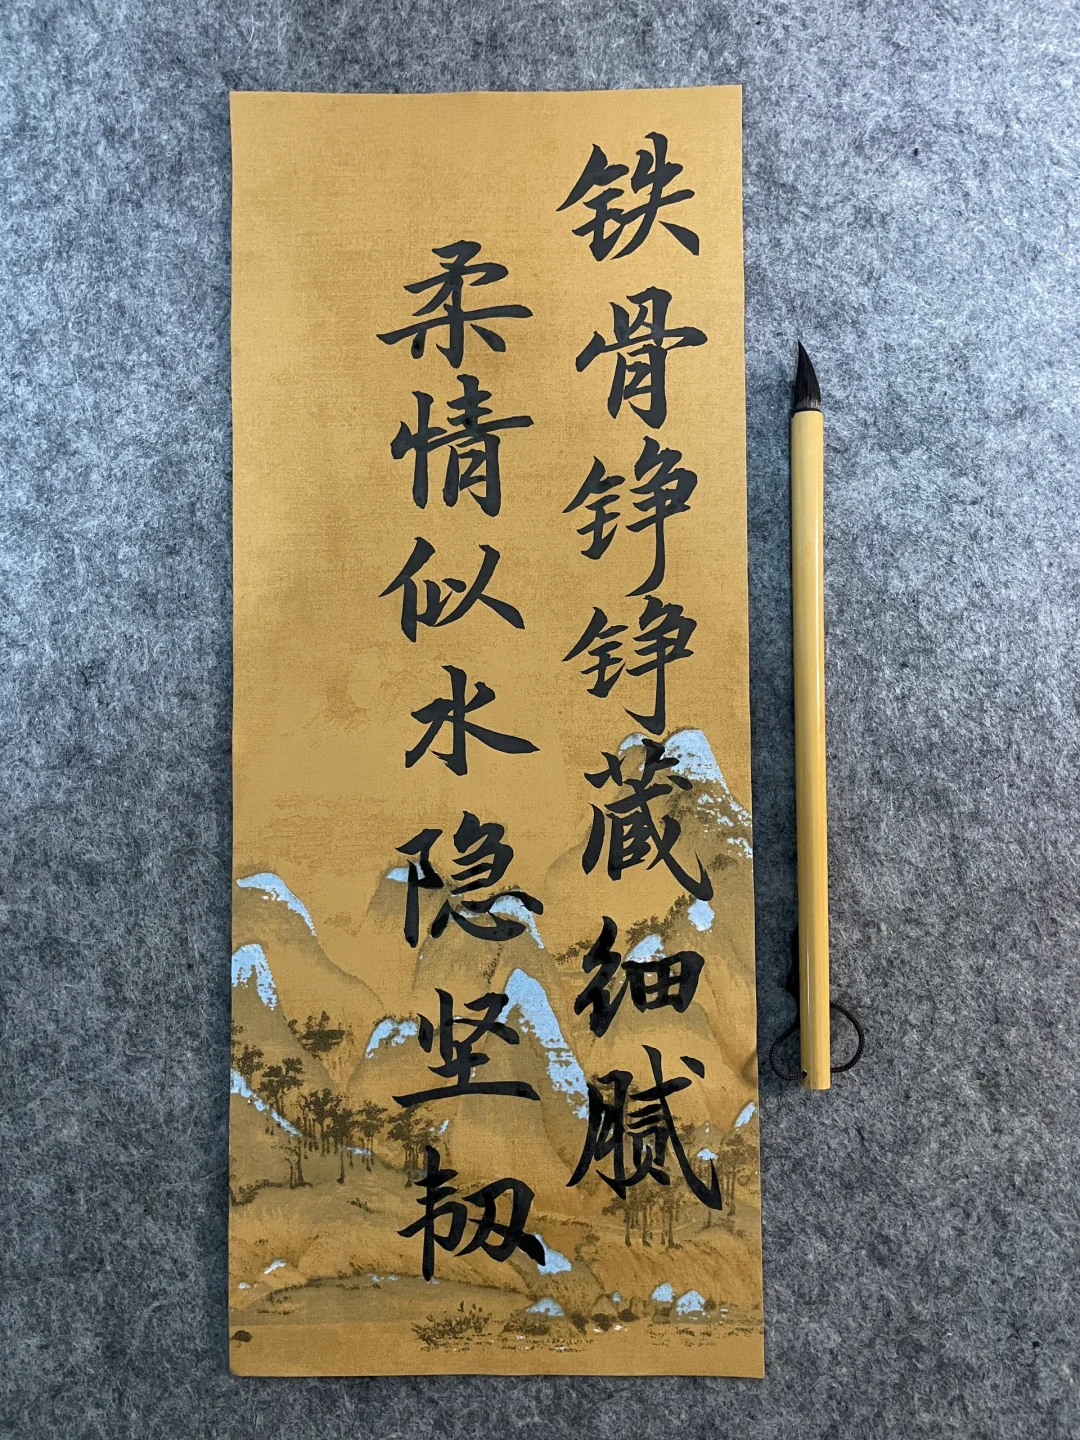 铁骨铮铮蒇细腻
柔情似水隐坚韧